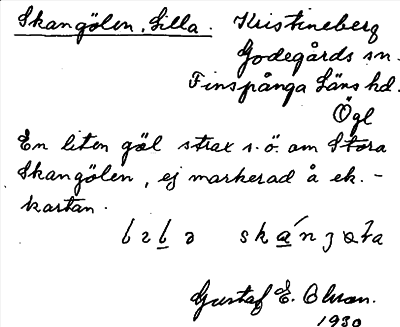 Skangölen, Lilla. Kristineberg
Godegårds sn.
Finspånga Läns hd.
Ögl
En liten göl strax s.ö. om Stora
Skangölen, ej markerad å ek.-
kartan.
Gustaf E. Olson.
1930